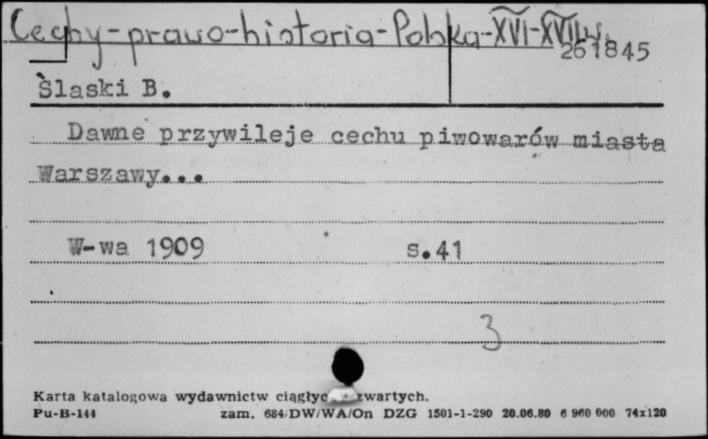 Cechy-prawo-historia-Polska-XVI-XVIIw.
261845
Ślaski B.
Dawne przywileje cechu piwowarów miasta
Warszawy...
W-wa 1909 s.41
3
Karta katalogowa wydawnictw zwartych.
Pu-B-144 zam. 684/DW/WA/On DZG 1501-1-290 20.06.80 6 960 000 74x120